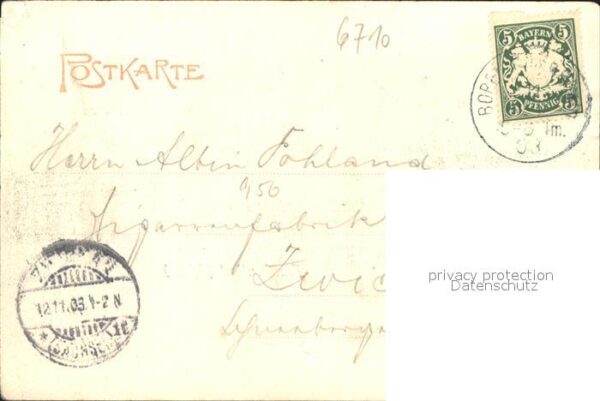 6710
POSTKARTE
5 BAYERN 5
5 PFENNIG 5
Herrn Albin Pohland
9,50
Zigarrenfabrik
Zwic
Schneeberger
12.11.03. 1-2 N
privacy protection
Datenschutz